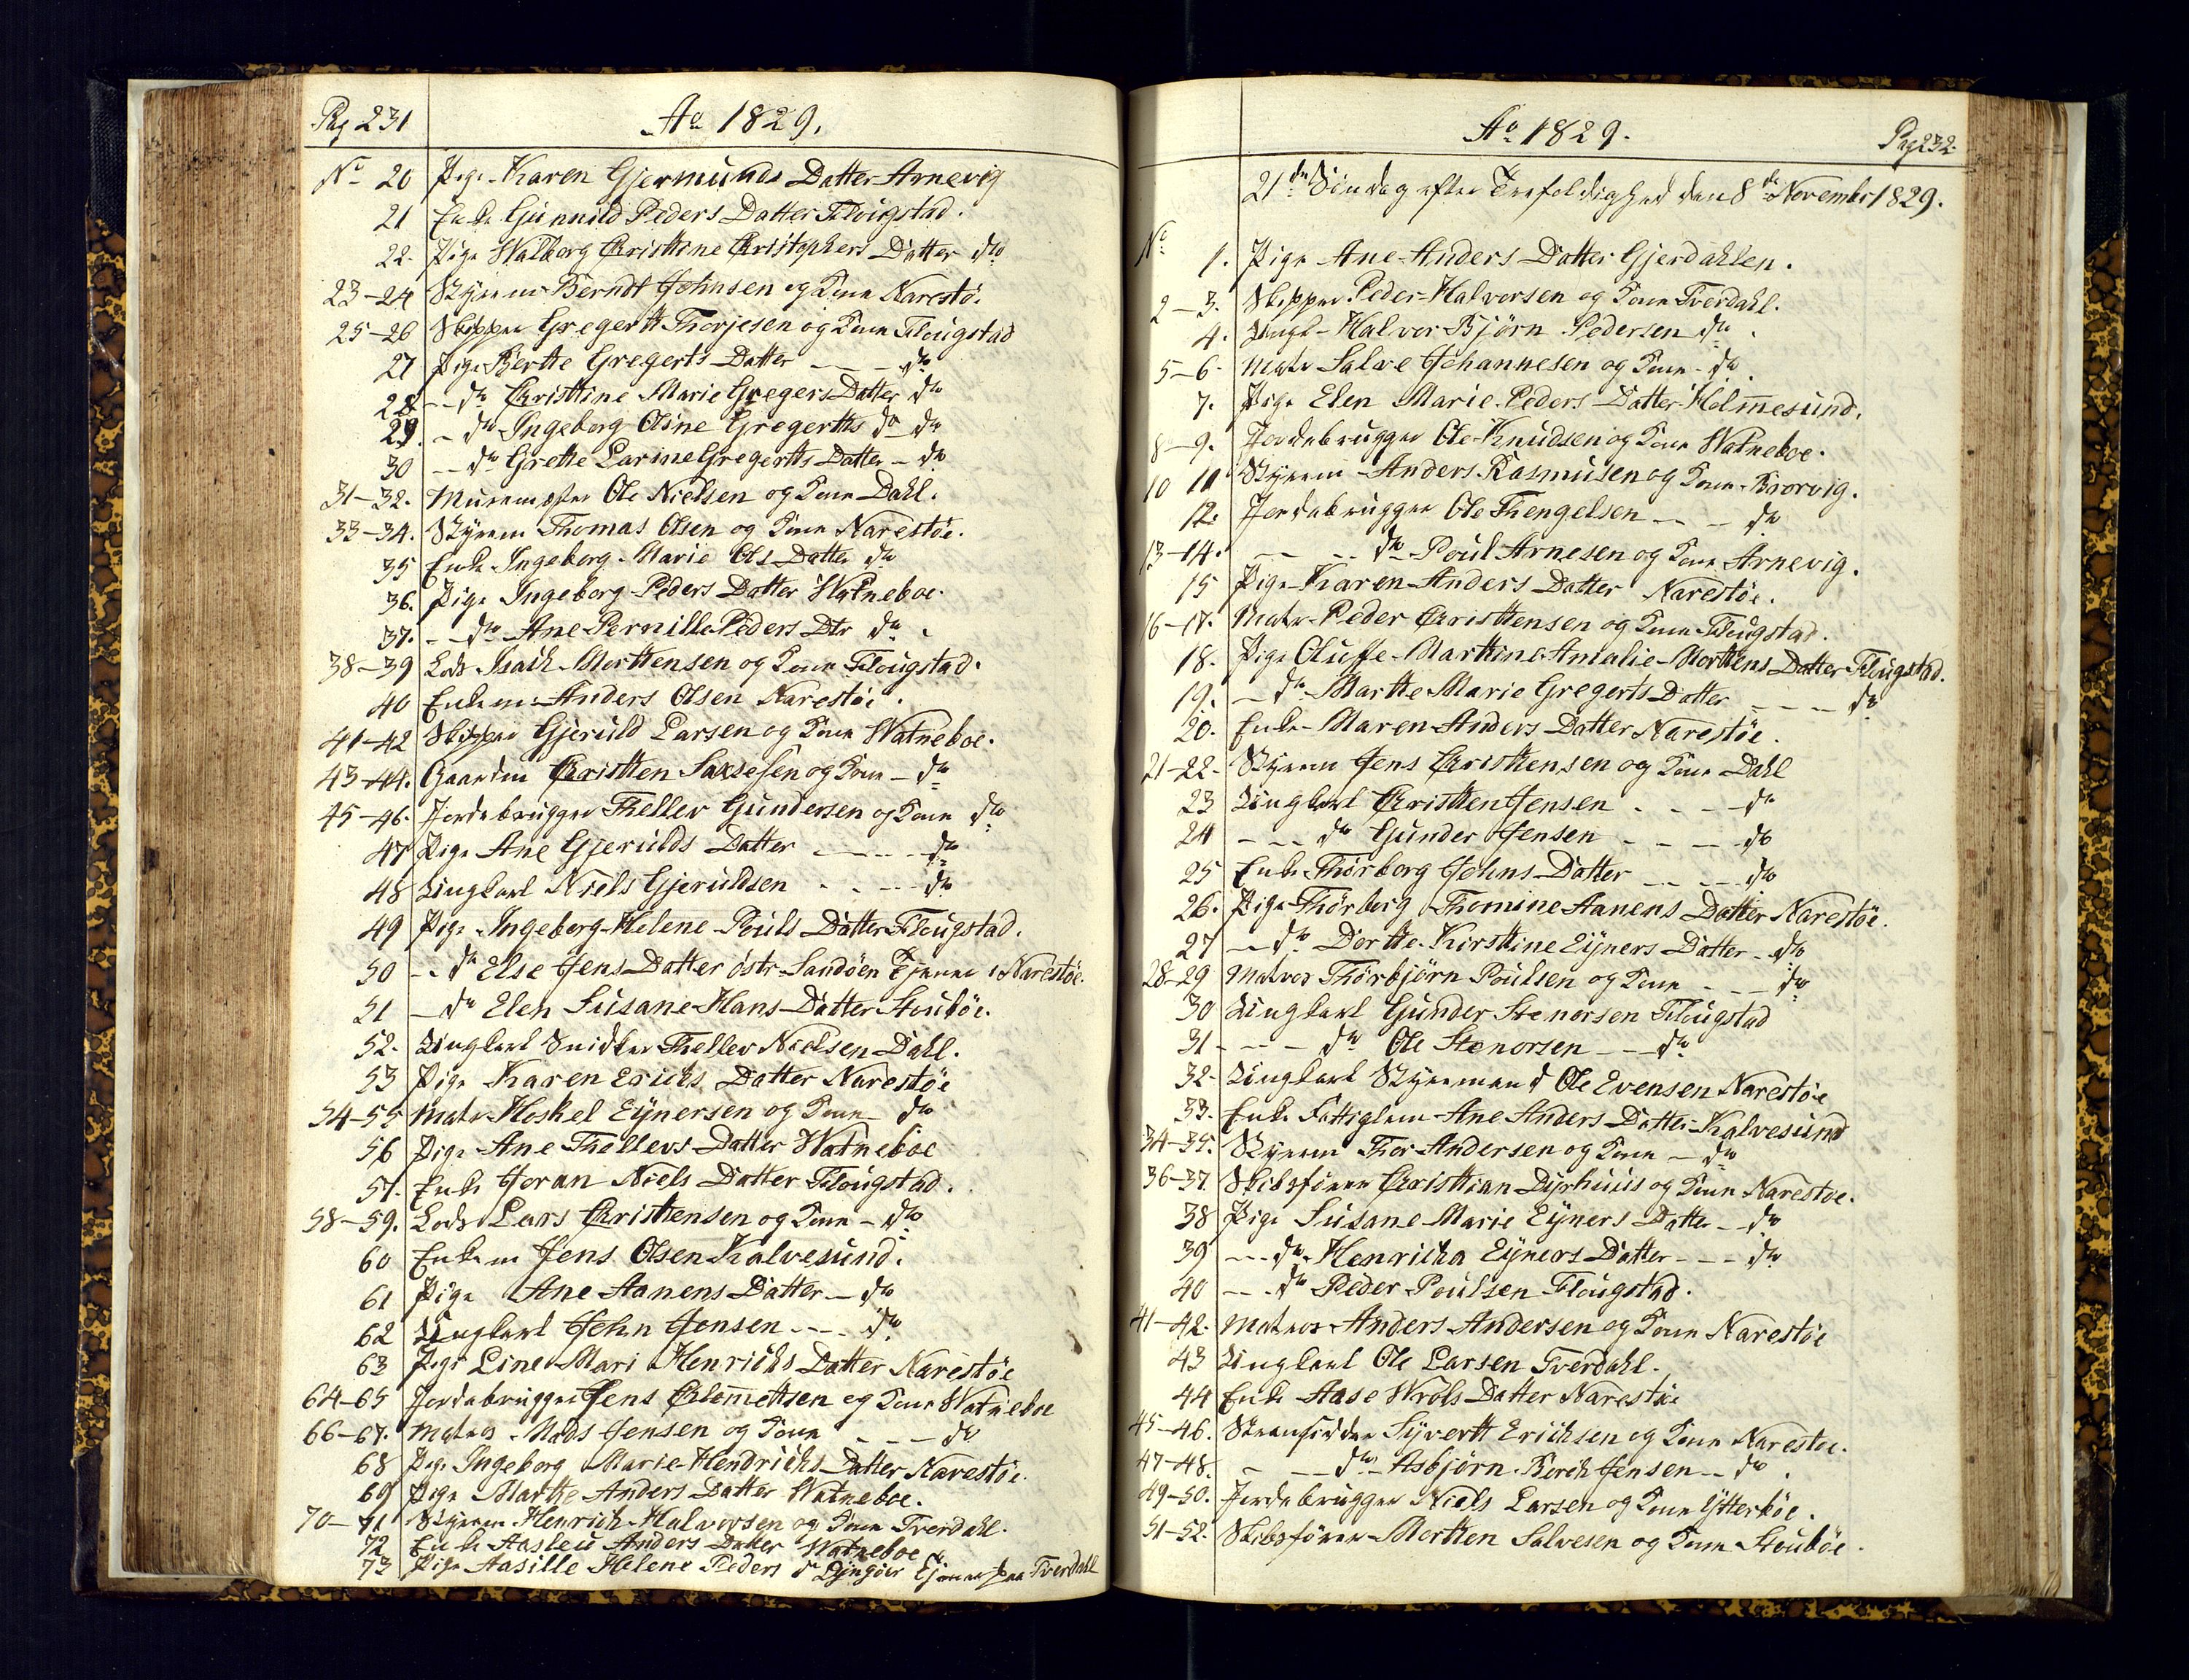 Pag 231
Ao 1829.
No 20 Pige Karen Gjermunds Datter Arnevig
21 Enke Gunnild Peders Datter Flougstad.
22. Pige Walborg Christine Christophers Datter do
23-24 Styrm Berndt Johnsen og Kone Narestø.
25-26 Skipper Gregertt Thorjesen og Kone Flougstad
27 Pige Berthe Gregerts Datter - - - do
28 - - do Christine Marie Gregers Datter do
29. - do Ingeborg Oline Gregertts do do
30 - - do Grethe Larine Gregertts Datter - do
31-32. Muremester Ole Nielsen og Kone Dahl.
33-34. Styrm Thomas Olsen og Kone Narestøe.
35 Enke Ingeborg Marie Ols Datter do
36. Pige Ingeborg Peders Datter Watneboe.
37. - - do Ane Pernille Peders Dtr do.
38-39 Lods Isach Morttensen og Kone Flougstad.
40 Enkem Anders Olsen Narestøe.
41-42 Skipper Gjeruld Larsen og Kone Watneboe.
43-44. Gaardm Christen Saxsesen og Kone - do
45-46. Jordebrugger Thellev Gundersen og Kone do
47 Pige Ane Gjerulds Datter - - - do
48 Ungkarl Niels Gjeruldsen - - - do
49 Pige Ingeborg Helene Pouls Datter Flougstad.
50 - - do Else Jens Datter østr Sandøen Tjener i Narestøe.
51 - do Elen Susane Hans Datter Stoubøe.
52. Ungkarl Snidker Thellev Nielsen Dahl.
53 Pige Karen Erichs Datter Narestøe
54-55 Matr Hoskel Eynersen og Kone do
56 Pige Ane Thellevs Datter Watneboe
57. Enke Joran Niels Datter Flougstad.
58-59. Lods Lars Christensen og Kone - do
60 Enkem Jens Olsen Kalvesund.
61 Pige Ane Aanens Datter - do
62 Ungkarl John Jensen - - - do
63 Pige Line Mari Henrichs Datter Narestøe
64-65 Jordebrugger Jens Clemettsen og Kone Watneboe
66-67. Matros Mads Jensen og Kone - - - do
68 Pige Ingeborg Marie Hendrichs Datter Narestøe.
69 Pige Marthe Anders Datter Watneboe.
70-71 Styrm Henrich Halvorsen og Kone Tverdahl.
72 Enke Aasleu Anders Datter Watneboe
73 Pige Aasille Helene Peders d Lyngøer Tjener paa Tverdahl
Ao 1829.
Pag 232
21de Søndag efter Trefoldighed den 8de November 1829.
No 1. Pige Ane Anders Datter Gjerdahlen.
2-3. Skipper Peder Halvorsen og Kone Tverdahl.
4. Ungk Halvor Bjørn Pedersen do.
5-6. Matr Salve Johannesen og Kone - do.
7. Pige Elen Marie Peders Datter Holmesund.
8-9. Jordebrugger Ole Knudsen og Kone Watneboe.
10 11 Styrm Anders Rasmusen og Kone Brorvig.
12. Jordebrugger Ole Thengelsen - - - do
13-14. - - - do Poul Arnesen og Kone Arnevig.
15 Pige Karen Anders Datter Narestøe.
16-17. Matr Peder Christensen og Kone Flougstad.
18. Pige Oluffe Martine Amalie Mortens Datter Flougstad.
19. - do Marthe Marie Gregerts Datter - - - do
20. Enke Maren Anders Datter Narestøe.
21-22. Styrm Jens Christensen og Kone Dahl
23 Ungkarl Christen Jensen - - - do
24 - - - do Gunder Jensen - - - do
25 Enke Thorborg Johns Datter - - - do
26. Pige Thorborg Thomine Aanens Datter Narestøe.
27 - do Dorthe Kirstine Eyners Datter - do
28-29 Matros Thorbjørn Poulsen og Kone - - - do
30 Ungkarl Gunder Stenorsen Flougstad
31 - - - do Ole Stenorsen - - do
32. Ungkarl Styrmand Ole Evensen Narestøe
33. Enke Fattiglem Ane Anders Datter Kalvesund
34-35. Styrm Thor Andersen og Kone - do
36-37. Skibsfører Christian Dyrhuus og Kone Narestøe.
38 Pige Susane Marie Eyners Datter - do
39 - - - do Henricha Eyners Datter - - - do
40 - - do Peder Poulsen Flougstad.
41-42. Matros Anders Andersen og Kone Narestøe
43 Ungkarl Ole Larsen Tverdahl.
44 Enke Aase Wrols Datter Narestøe
45-46. Stransidder Syvertt Erichsen og Kone Narestøe.
47-48. - - - do Asbjørn Berch Jensen - - do.
49-50. Jordebrugger Niels Larsen og Kone Ytterbøe.
51-52. Skibsfører Mortten Salvesen og Kone Stoubøe.